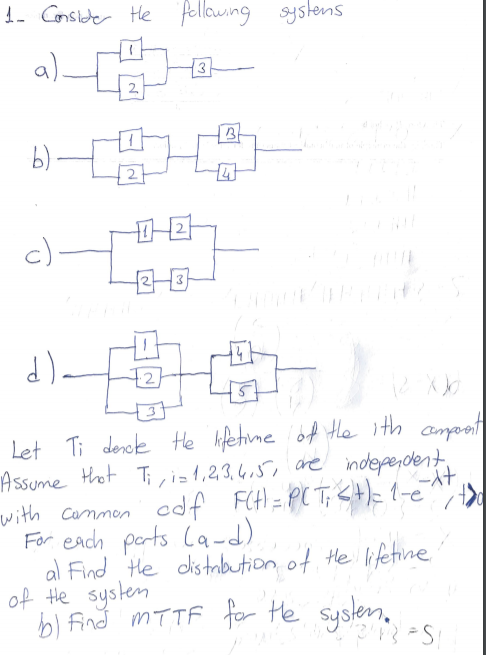 1- Consider the following systems
a) 1 2 3
b) 1 2 3 4
c) 1 2 2 3
d) 1 2 3 4 5
Let Ti denote the lifetime of the ith component
Assume that Ti, i=1,2,3,4,5, are independent
with common cdf F(t)=P(Ti≤t)=1-e^-λt, t>0
For each parts (a-d)
a) Find the distribution of the lifetime
of the system
b) Find MTTF for the system.